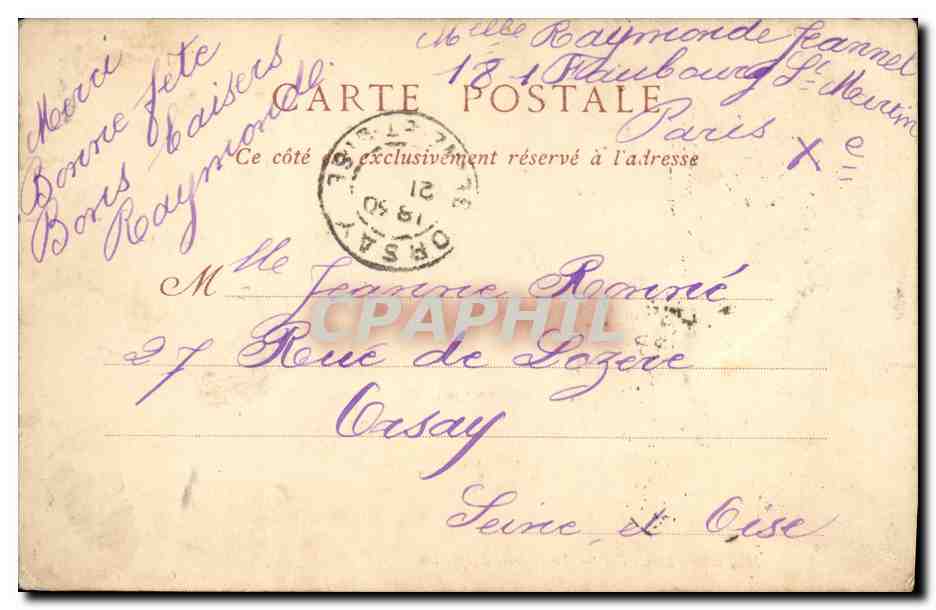 Merci
Bonne fête
Bons baisers
Raymonde
Mlle Raymonde Jeannel
181 Faubourg St Martin
Paris X e
CARTE POSTALE
Ce côté est exclusivement réservé à l'adresse
ORSAY
SEINE-ET-OISE
18 30
21
Mlle Jeanne Ronné
CPAPHIL
27 Rue de Lozère
Orsay
Seine et Oise